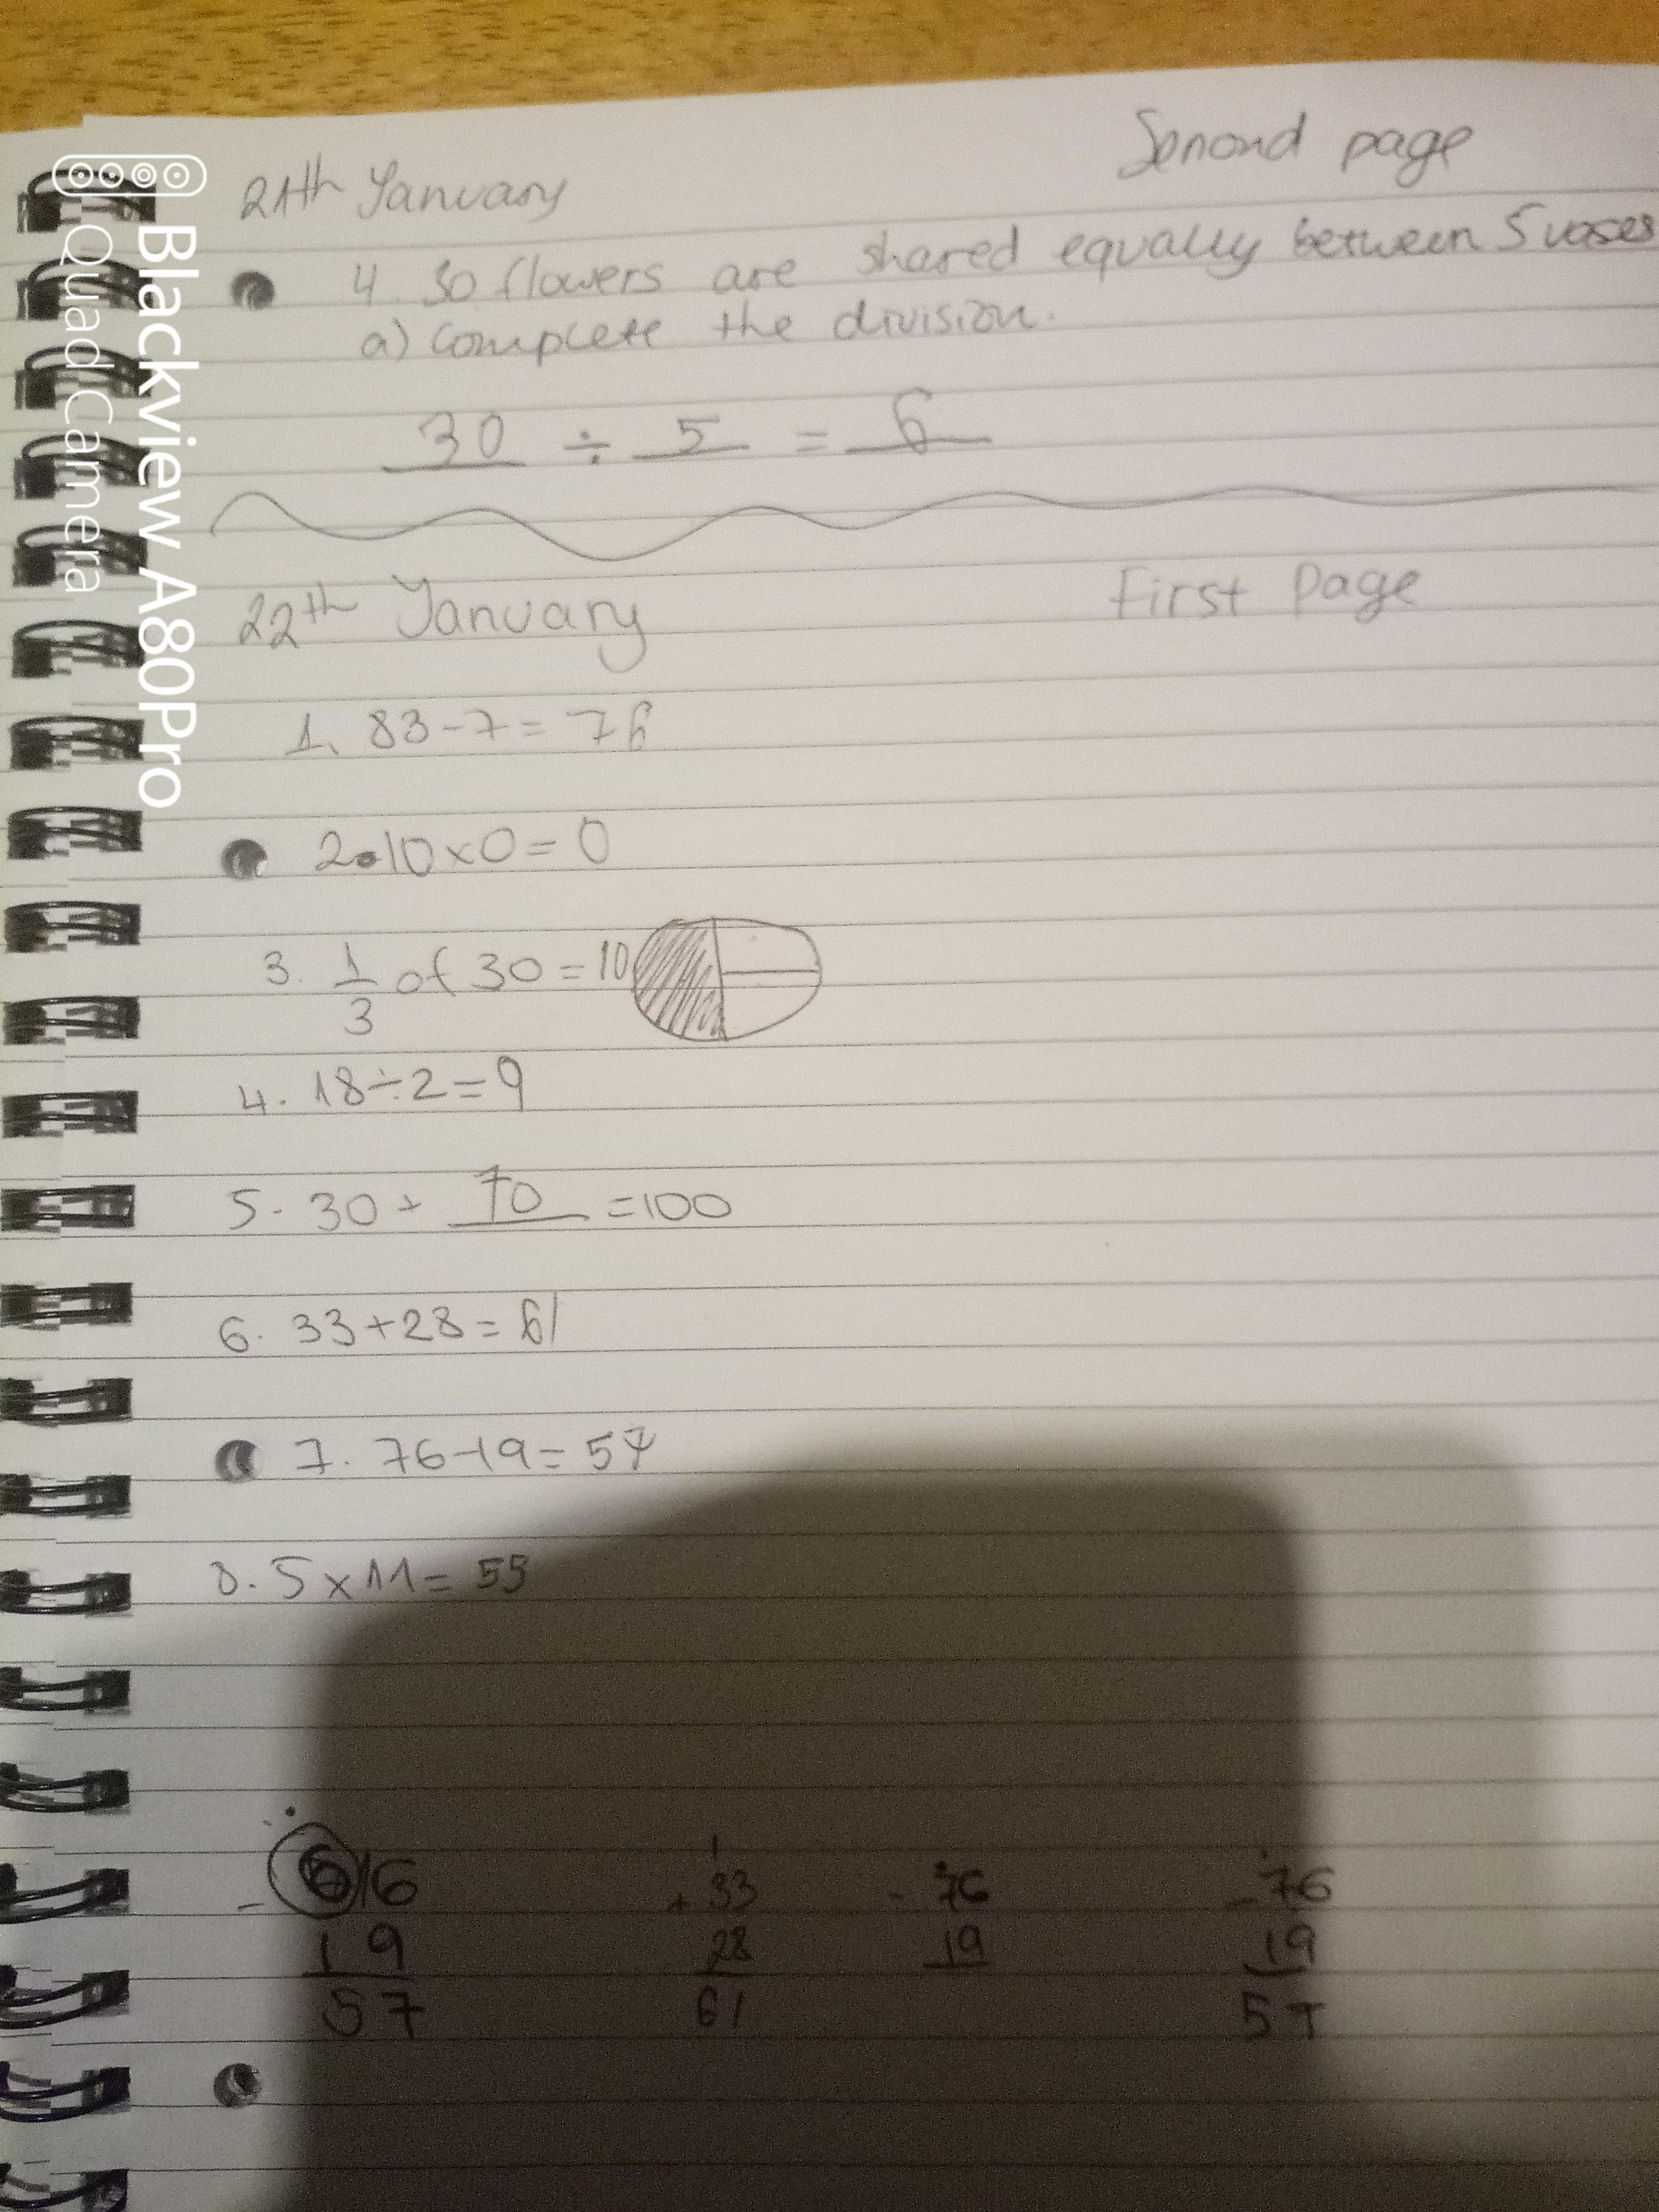 21th January
Senond page
4. 30 flowers are shared equally between 5 vases
a) complete the division.
30 ÷ 5 = 6
22th January
First Page
1. 83-7= 76
2.10×0= 0
3. 1/3 of 30 = 10
4. 18÷2=9
5. 30+ 70 =100
6. 33+28= 61
7. 76-19= 57
8. 5×11= 55
616 +33 - 76 - 76
- 19 28 19 19
57 61 57
Blackview A80Pro
Quad Camera